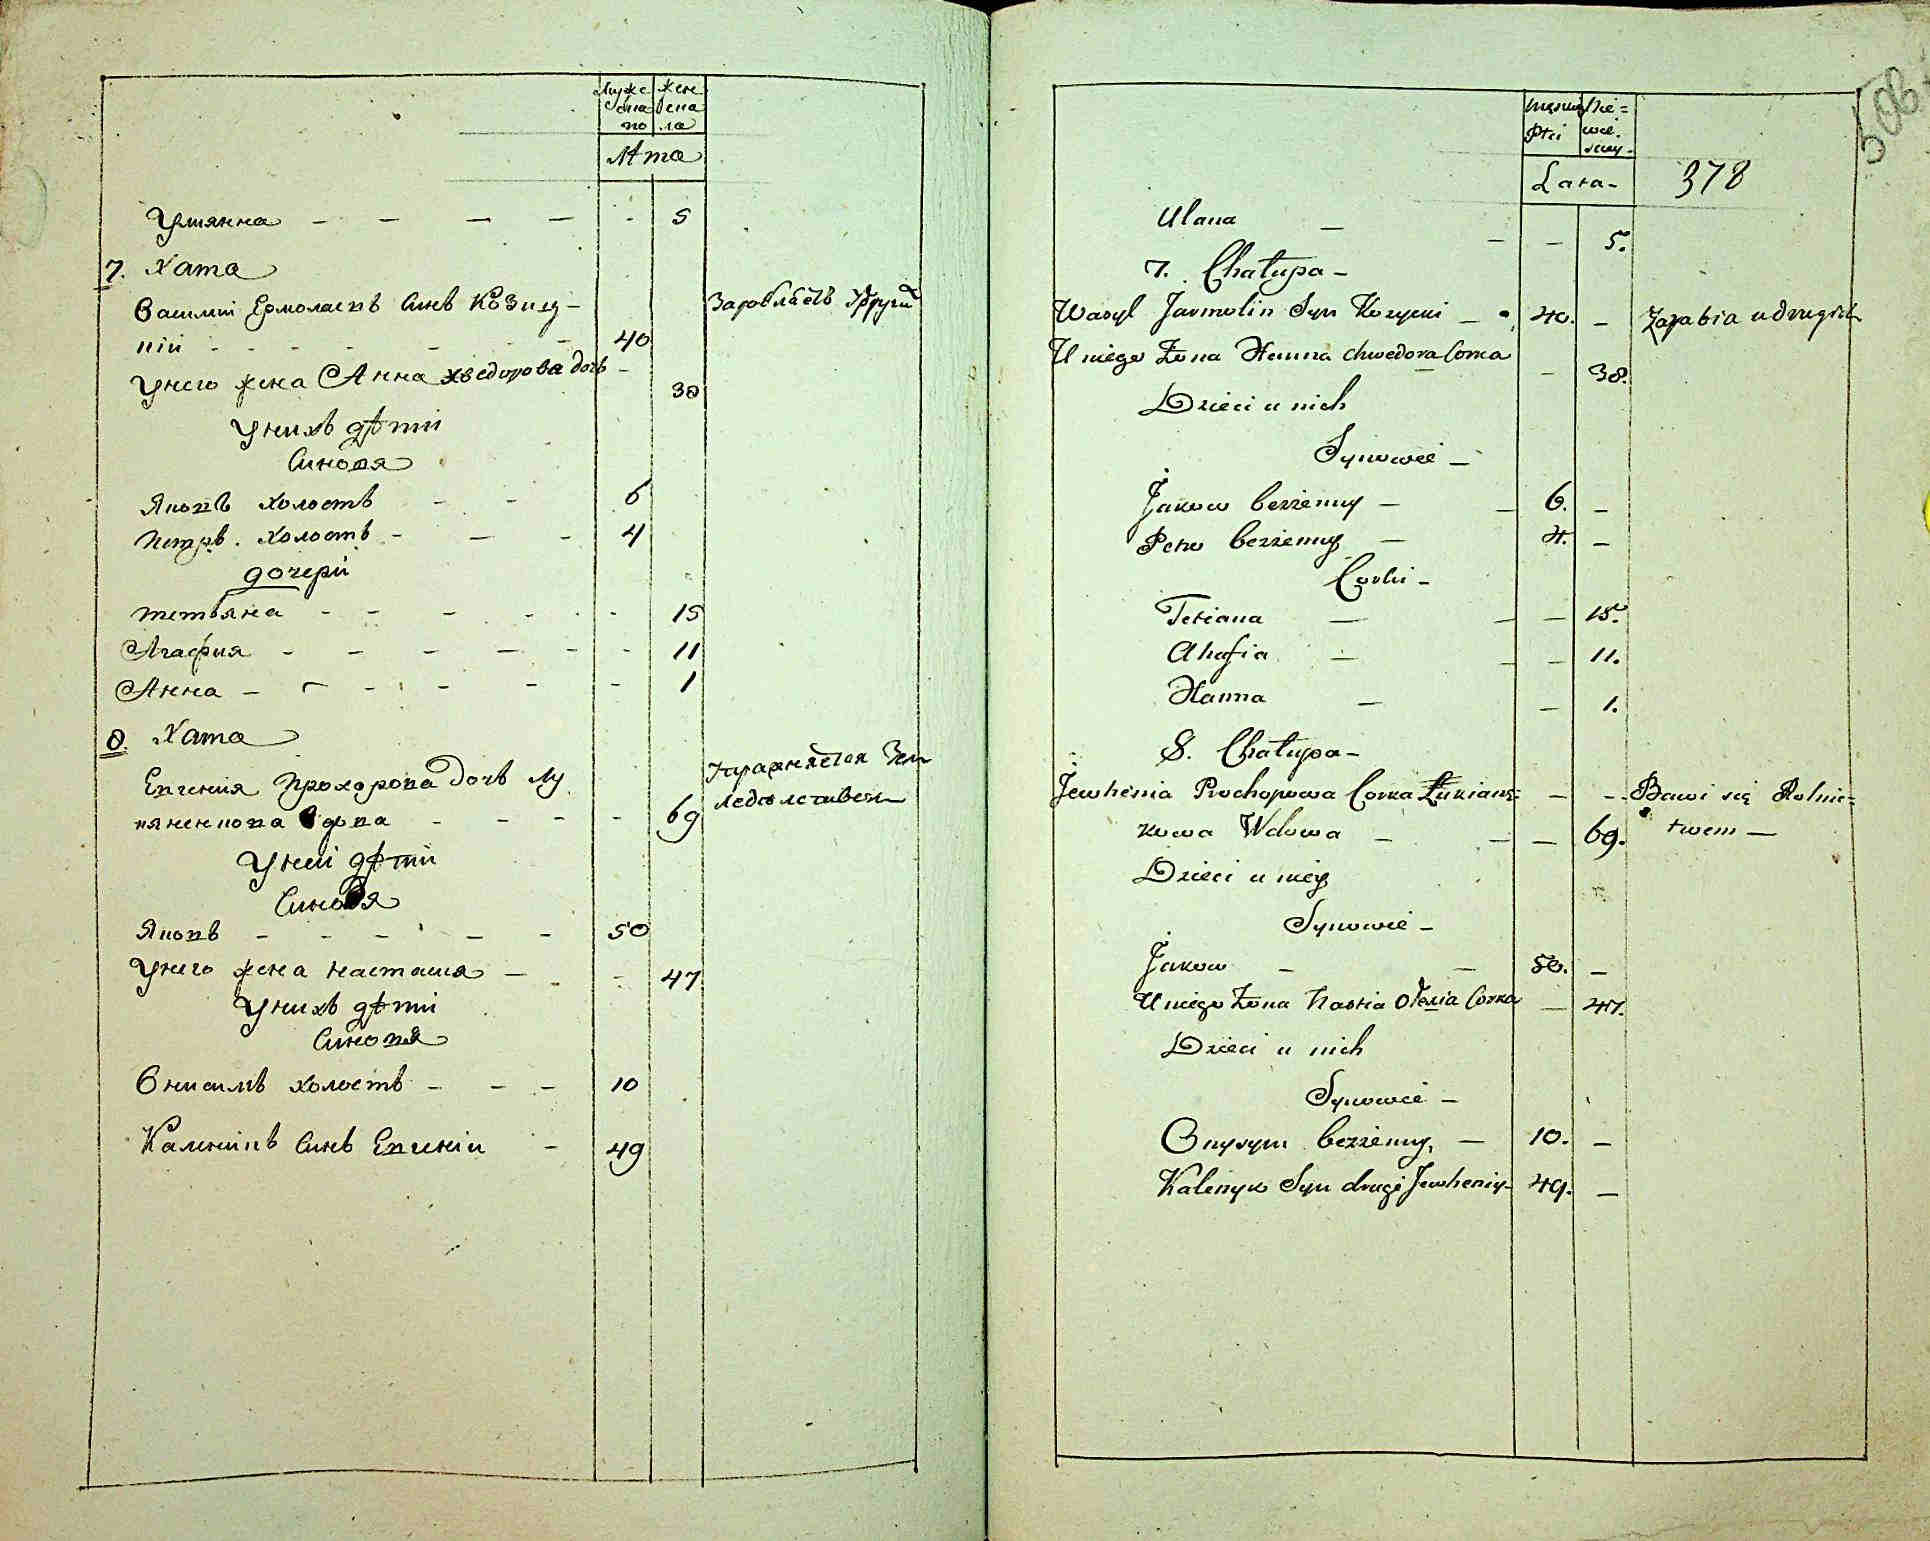 Муже
ска
по
жен
ска
ла
Лѣта
Улиянна - - - - - 5
7. Хата
Василий Ермолаевъ Синъ Козиц-
кій - - - - - 40
Унего жена Анна Хведорова дочь - 38
Унихъ дѣти
Синовя
Яковъ холостъ - - 6
Петръ холостъ - - - 4
дочери
Тетьяна - - - - - - 15
Агафия - - - - - - 11
Анна - - - - - - 1
Зароблаетъ Удруги
8. Хата
Евгения Прохорова дочь Лу
кяненкова вдова - - - - 69
Упражняется Зем
леделствем
Уней дѣти
Синовя
Яковъ - - - - - 50
Унего жена Настасия - - 47
Унихъ дѣти
Синовя
Онисимъ холостъ - - - 10
Калникъ Синъ Евгеніи - 49
męskiej
płci
nie=
wie.
sciey-
Lata-
378
506
Ulana - - - 5.
7. Chałupa-
Wasyl Jarmolin Syn Kozycki - 40. - Zarabia u drugich
U niego Żona Hanna Chwedora Corka - 38.
Dzieci u nich
Synowie -
Jakow bezżenny - - 6. -
Petro bezżenny - 4. -
Corki -
Tetiana - - - 15.
Ahafia - - - 11.
Hanna - - 1.
8. Chałupa-
Jewhenia Prochopowa Corka Łukianę= - - Bawi się Rolnic=
kowa Wdowa - - - 69. twem -
Dzieci u niey
Synowie -
Jakow - - 50. -
U niego Żona Nastia Corka - 47.
Dzieci u nich
Synowie -
Onysym bezżenny, - 10. -
Kalenyk Syn drugi Jewheniy- 49. -